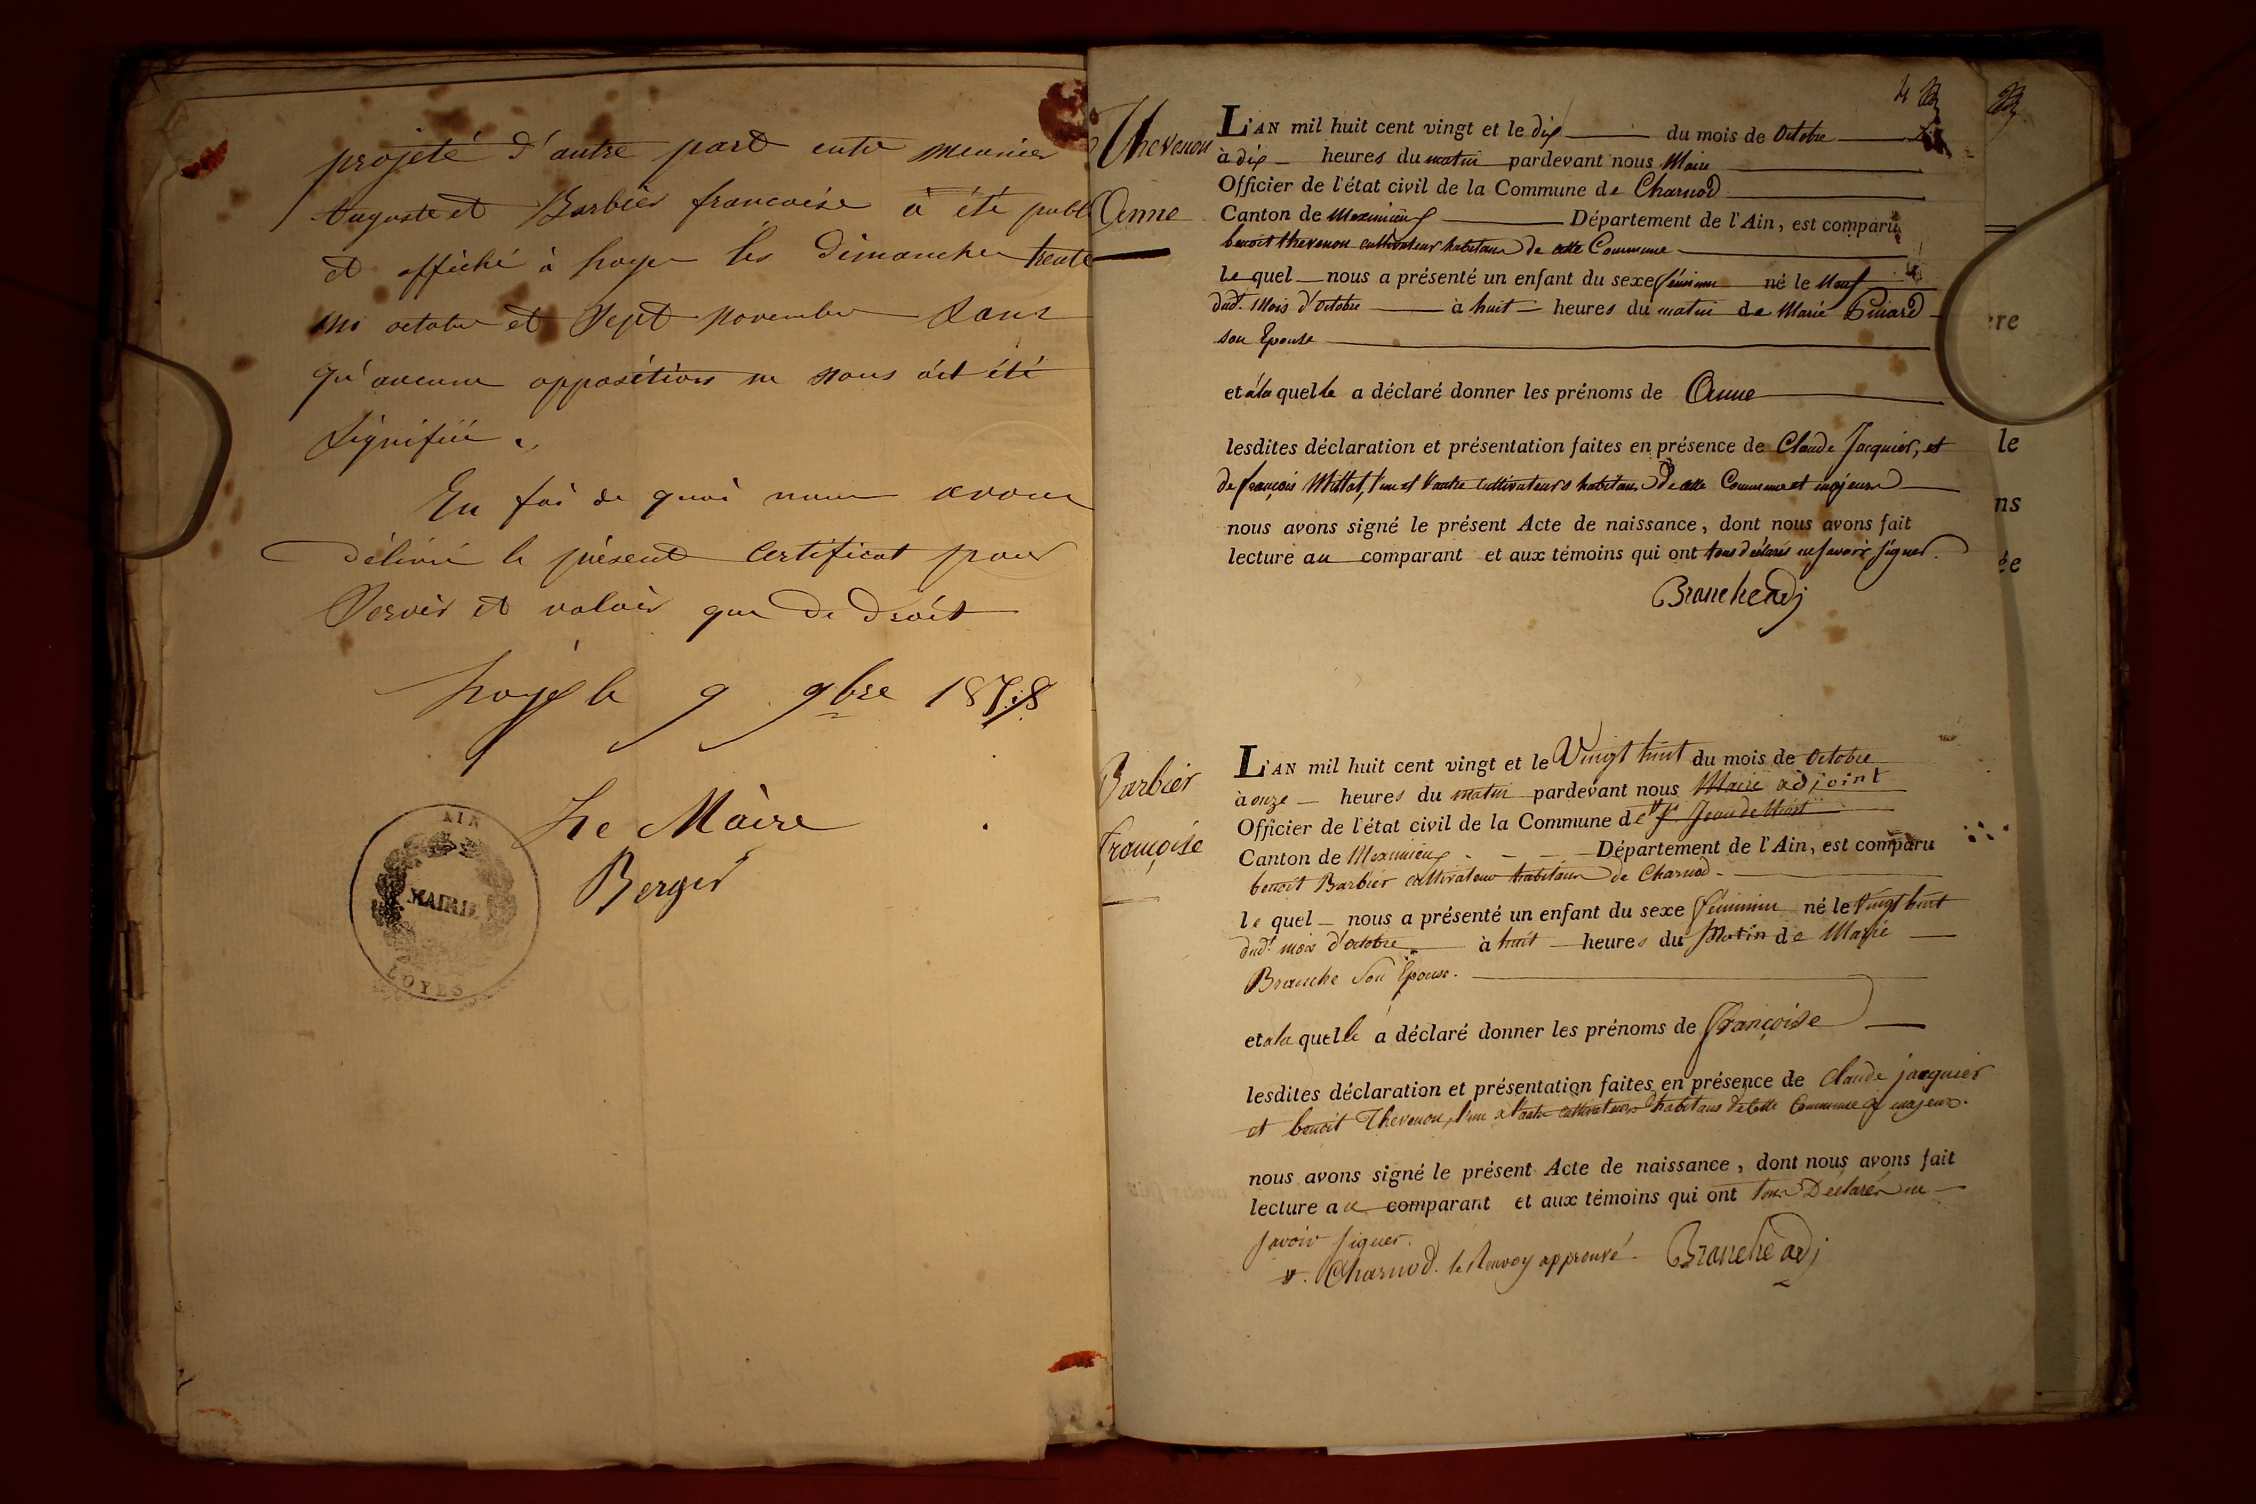 projeté d'autre part entre meunier
auguste et Barbier francoise a été publ
et affiché à Loyes les dimanches trente
un octobre et Sept novembre Sans
qu'aucune opposition ne nous ait été
signifiée.
En foi de quoi nous avons
délivré le présent Certificat pour
Servir et valoir que de droit
Loyes le 9 9bre 1858
Le Maire
Berger
AIN
MAIRIE
LOYES
Thevenon
Anne
L'AN mil huit cent vingt et le dix du mois de Octobre
à dix heures du matin pardevant nous Maire
Officier de l'état civil de la Commune de Charnod
Canton de Meximieux Département de l'Ain, est comparu
benoit thevenon cultivateur habitant de cette Commune
lequel nous a présenté un enfant du sexe féminin né le Neuf
dud. Mois d'Octobre à huit heures du matin de Marie
son Epouse
et à la quelle a déclaré donner les prénoms de Anne
lesdites déclaration et présentation faites en présence de Claude Jacquier, et
de françois Millet, l'un et l'autre cultivateurs habitans de cette Commune et majeurs
nous avons signé le présent Acte de naissance, dont nous avons fait
lecture au comparant et aux témoins qui ont tous déclarés ne savoir signer.
Branche adj
Barbier
françoise
L'AN mil huit cent vingt et le Vingt huit du mois de Octobre
à onze heures du matin pardevant nous Maire adjoint
Officier de l'état civil de la Commune de St Jean de Niost
Canton de Meximieux Département de l'Ain, est comparu
benoit Barbier cultivateur habitant de Charnod.
le quel nous a présenté un enfant du sexe féminin né le Vingt huit
dud. mois d'octobre à huit heures du Matin de Marie
Branche Son Epouse.
et à la quelle a déclaré donner les prénoms de françoise
lesdites déclaration et présentation faites en présence de Claude jacquier
et benoit Thevenon, l'un et l'autre cultivateurs habitans de Cette Commune et majeurs.
nous avons signé le présent Acte de naissance, dont nous avons fait
lecture au comparant et aux témoins qui ont tous Déclarés ne
savoir signer.
Charnod. le Renvoy approuvé. Branche adj
re
le
ns
ée